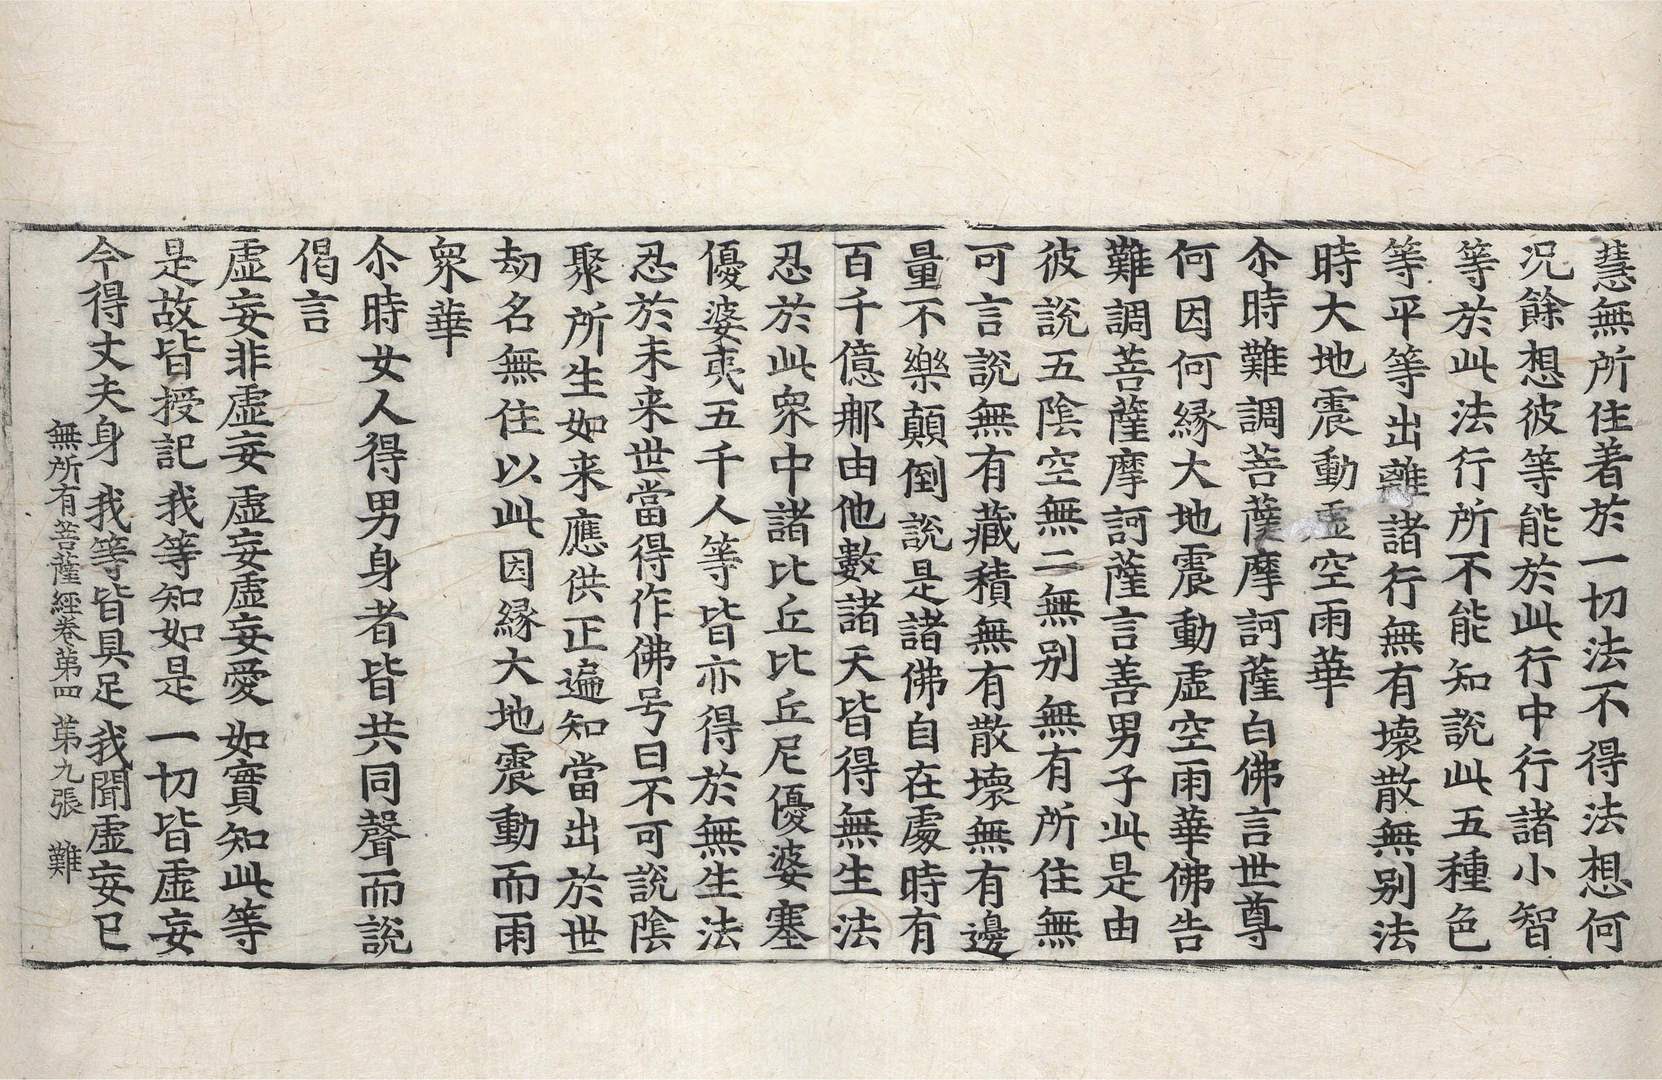 慧無所住着於一切法不得法想何
況餘想彼等能於此行中行諸小智
等於此法行所不能知說此五種色
等平等出離諸行無有壞散無別法
時大地震動虛空雨華
尒時難調菩薩摩訶薩白佛言世尊
何因何縁大地震動虛空雨華佛告
難調菩薩摩訶薩言善男子此是由
彼說五陰空無二無別無有所住無
可言說無有藏積無有散壞無有邊
量不樂顛倒說是諸佛自在處時有
百千億那由他數諸天皆得無生法
忍於此眾中諸比丘比丘尼優婆塞
優婆夷五千人等皆亦得於無生法
忍於未来世當得作佛号曰不可說陰
聚所生如来應供正遍知當出於世
劫名無住以此因縁大地震動而雨
眾華
尒時女人得男身者皆共同聲而說
偈言
虛妄非虛妄 虛妄虛妄愛 如實知此等
是故皆授記 我等知如是 一切皆虛妄
今得丈夫身 我等皆具足 我聞虛妄已
無所有菩薩經卷第四 第九張 難